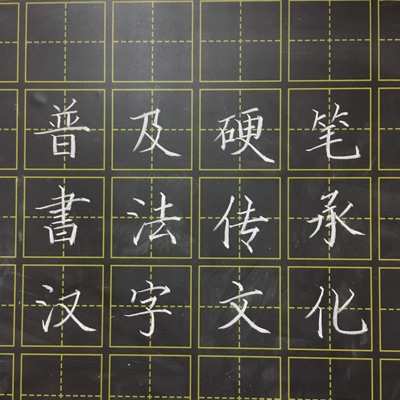 普及硬笔
書法传承
汉字文化